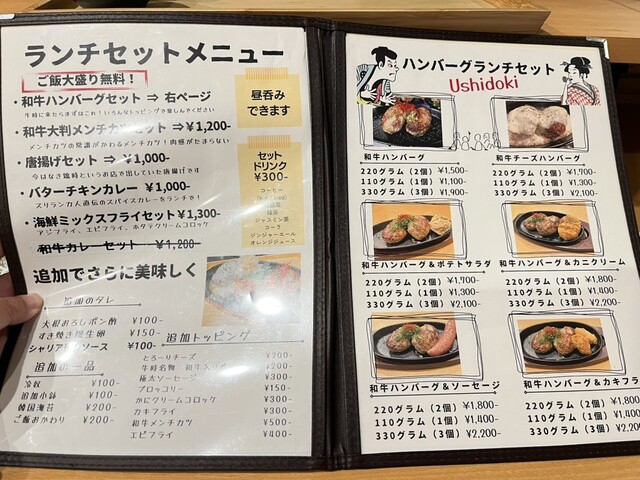 ランチセットメニュー
ご飯大盛り無料！
・和牛ハンバーグセット ⇒ 右ページ
・和牛大判メンチカツセット ⇒¥1,200-
メンチカツの常識がかわるメンチカツ！肉感がたまらない
・唐揚げセット ⇒ ¥1,000-
・バターチキンカレー ¥1,000-
スリランカ人直伝のスパイスカレーをランチで！
・海鮮ミックスフライセット¥1,300-
アジフライ、エビフライ、ホタテクリームコロッケ
和牛カレーセット ¥1,200-
昼呑み
できます
セット
ドリンク
¥300-
コーヒー
緑茶
ジャスミン茶
コーラ
ジンジャーエール
オレンジジュース
追加でさらに美味しく
追加のタレ
大根おろしポン酢 ¥100-
すき焼き風生卵 ¥150-
シャリアピンソース ¥100-
追加の一品
冷奴 ¥100-
追加小鉢 ¥100-
韓国海苔 ¥200-
ご飯おかわり ¥200-
追加トッピング
とろーりチーズ ¥200-
牛時名物 ¥200-
極太ソーセージ ¥300-
ブロッコリー ¥150-
かにクリームコロッケ ¥300-
カキフライ ¥300-
和牛メンチカツ ¥500-
エビフライ ¥400-
ハンバーグランチセット
Ushidoki
和牛ハンバーグ
220グラム（2個）¥1,500-
110グラム（1個）¥1,100-
330グラム（3個）¥1,900-
和牛チーズハンバーグ
220グラム（2個）¥1,700-
110グラム（1個）¥1,300-
330グラム（3個）¥2,100-
和牛ハンバーグ＆ポテトサラダ
220グラム（2個）¥1,700-
110グラム（1個）¥1,300-
330グラム（3個）¥2,100-
和牛ハンバーグ＆カニクリーム
220グラム（2個）¥1,800-
110グラム（1個）¥1,400-
330グラム（3個）¥2,200-
和牛ハンバーグ＆ソーセージ
220グラム（2個）¥1,800-
110グラム（1個）¥1,400-
330グラム（3個）¥2,200-
和牛ハンバーグ＆カキフライ
220グラム（2個）¥1,800-
110グラム（1個）¥1,400-
330グラム（3個）¥2,200-